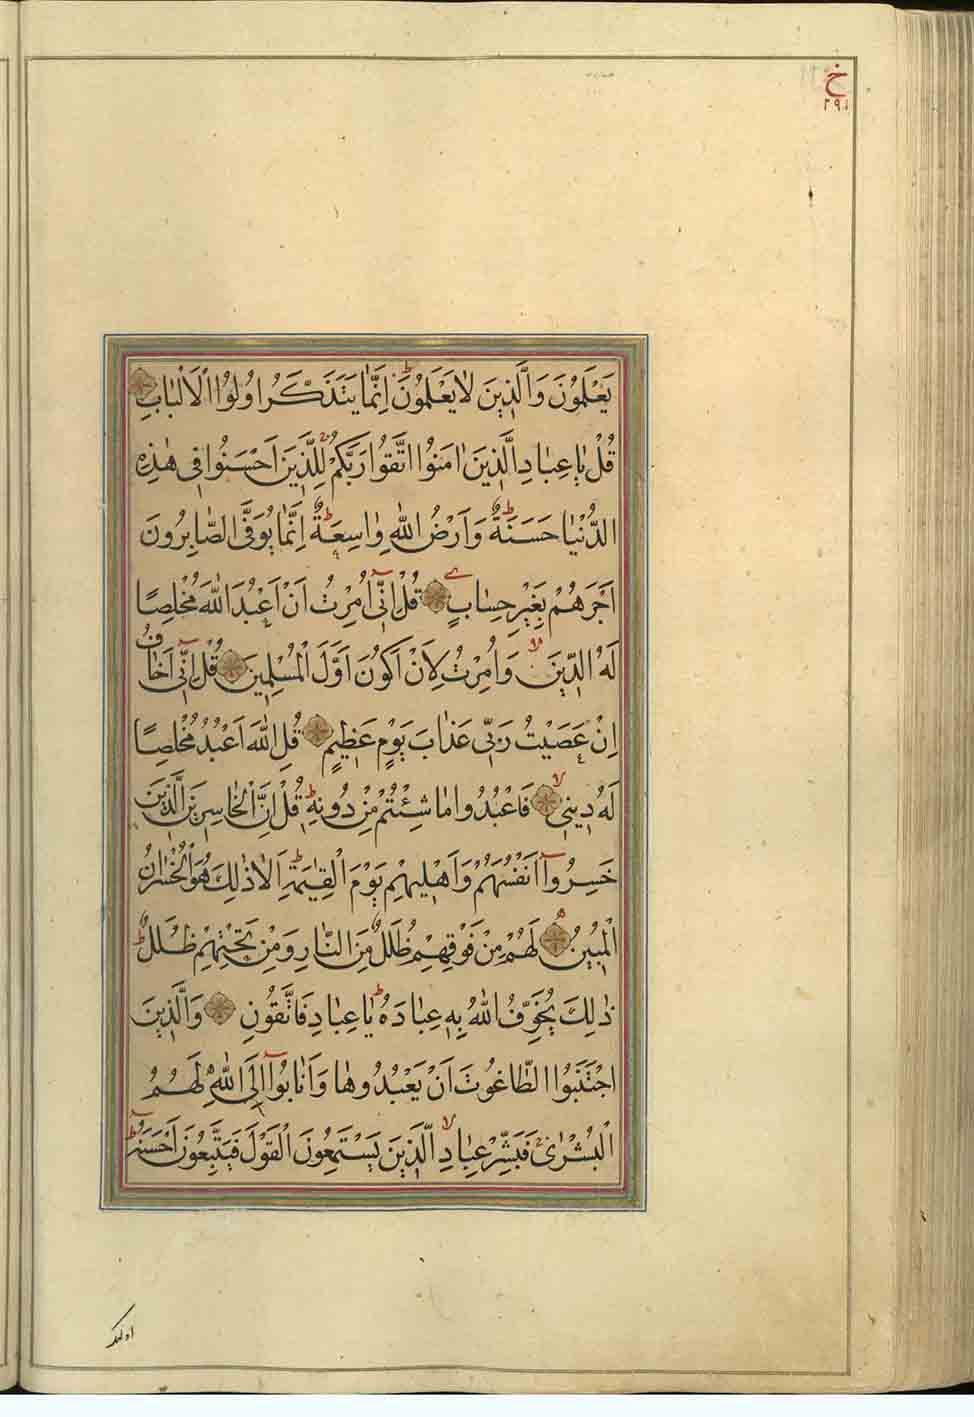 خ
٢٩١
يَعْلَمُونَ وَالَّذِينَ لَا يَعْلَمُونَ ط اِنَّمَا يَتَذَكَّرُ اُولُوا الْاَلْبَابِ
قُلْ يَا عِبَادِ الَّذِينَ اٰمَنُوا اتَّقُوا رَبَّكُمْ لِلَّذِينَ اَحْسَنُوا فِي هٰذِهِ
الدُّنْيَا حَسَنَةٌ ط وَاَرْضُ اللّٰهِ وَاسِعَةٌ ط اِنَّمَا يُوَفَّى الصَّابِرُونَ
اَجْرَهُمْ بِغَيْرِ حِسَابٍ قُلْ اِنِّي اُمِرْتُ اَنْ اَعْبُدَ اللّٰهَ مُخْلِصًا
لَهُ الدِّينَ لا وَاُمِرْتُ لِاَنْ اَكُونَ اَوَّلَ الْمُسْلِمِينَ قُلْ اِنِّي اَخَافُ
اِنْ عَصَيْتُ رَبِّي عَذَابَ يَوْمٍ عَظِيمٍ قُلِ اللّٰهَ اَعْبُدُ مُخْلِصًا
لَهُ دِينِي لا فَاعْبُدُوا مَا شِئْتُمْ مِنْ دُونِهِ ط قُلْ اِنَّ الْخَاسِرِينَ الَّذِينَ
خَسِرُوا اَنْفُسَهُمْ وَاَهْلِيهِمْ يَوْمَ الْقِيٰمَةِ ط اَلَا ذٰلِكَ هُوَ الْخُسْرَانُ
الْمُبِينُ لَهُمْ مِنْ فَوْقِهِمْ ظُلَلٌ مِنَ النَّارِ وَمِنْ تَحْتِهِمْ ظُلَلٌ ط
ذٰلِكَ يُخَوِّفُ اللّٰهُ بِهِ عِبَادَهُ ط يَا عِبَادِ فَاتَّقُونِ وَالَّذِينَ
اجْتَنَبُوا الطَّاغُوتَ اَنْ يَعْبُدُوهَا وَاَنَابُوا اِلَى اللّٰهِ لَهُمُ
الْبُشْرٰى فَبَشِّرْ عِبَادِ لا الَّذِينَ يَسْتَمِعُونَ الْقَوْلَ فَيَتَّبِعُونَ اَحْسَنَهُ ط
اولئك